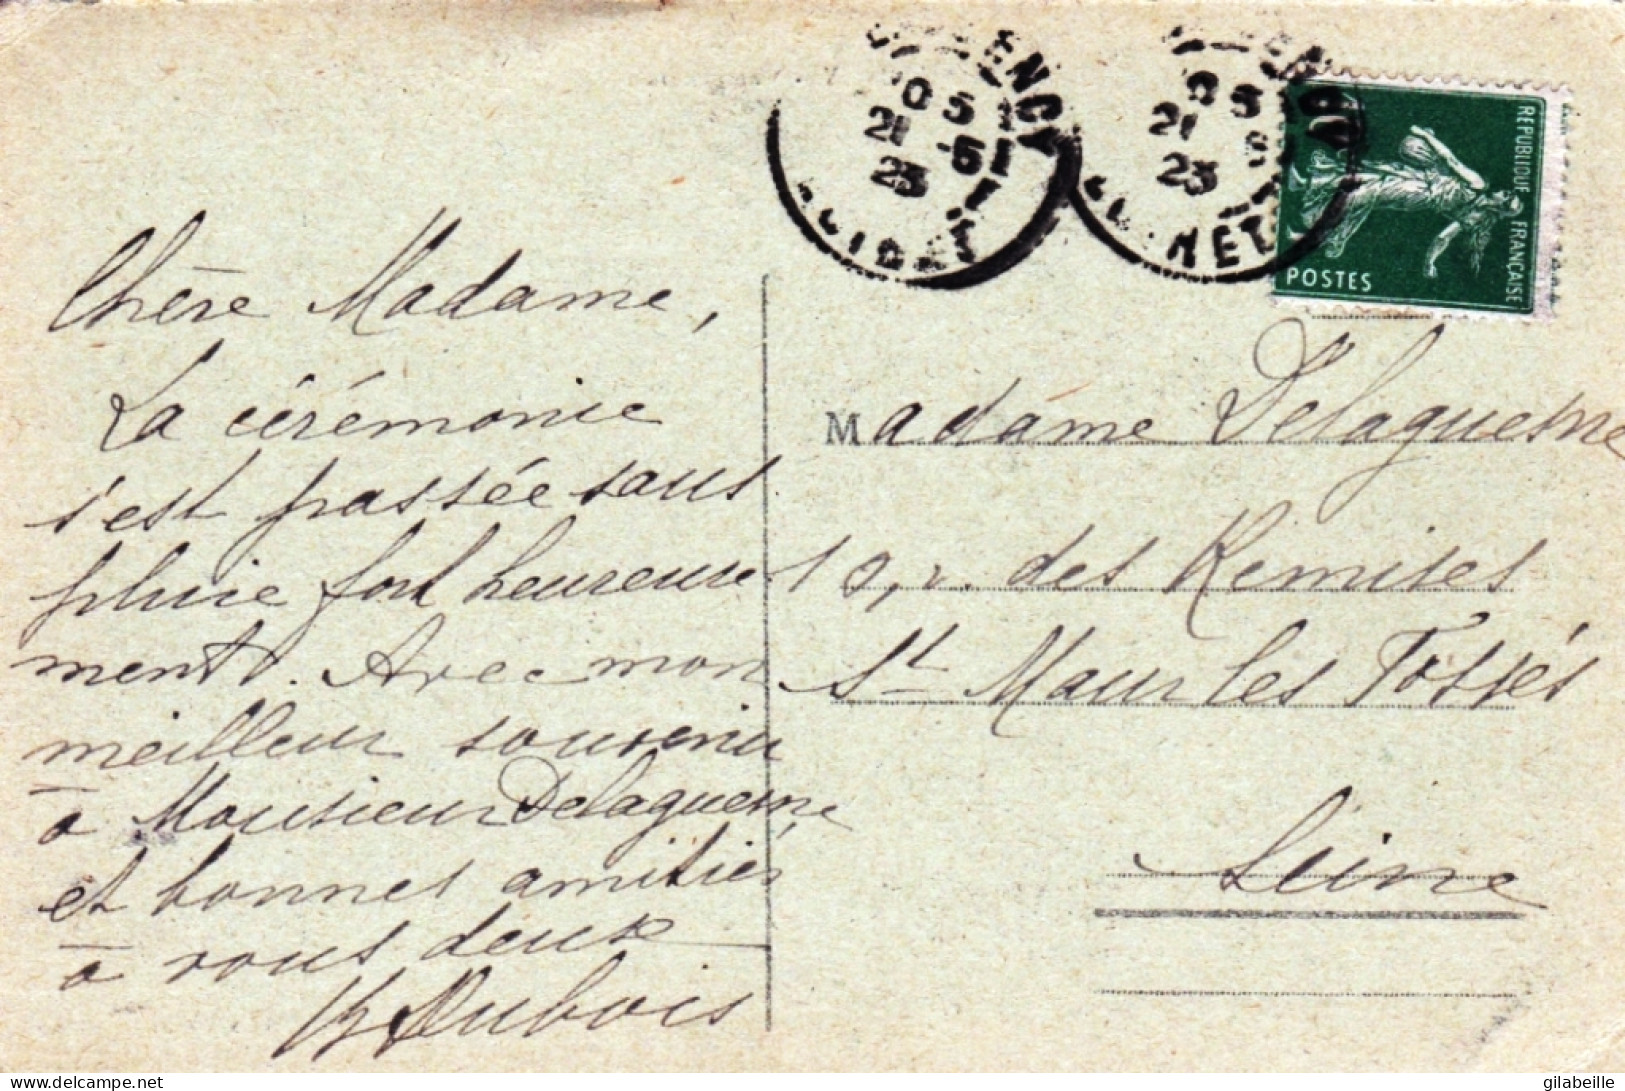 Chère Madame,
La cérémonie
s'est passée sans
pluie fort heureuse
ment. Avec mon
meilleur souvenir
à Monsieur Delaguesne
et bonnes amitiés
à vous deux
Dubois
21 5
23
21
23
LOIRET
REPUBLIQUE FRANÇAISE
POSTES
Madame Delaguesne
10, r. des Remises
St Maur les Fossés
Seine
www.delcampe.net
gilabeille